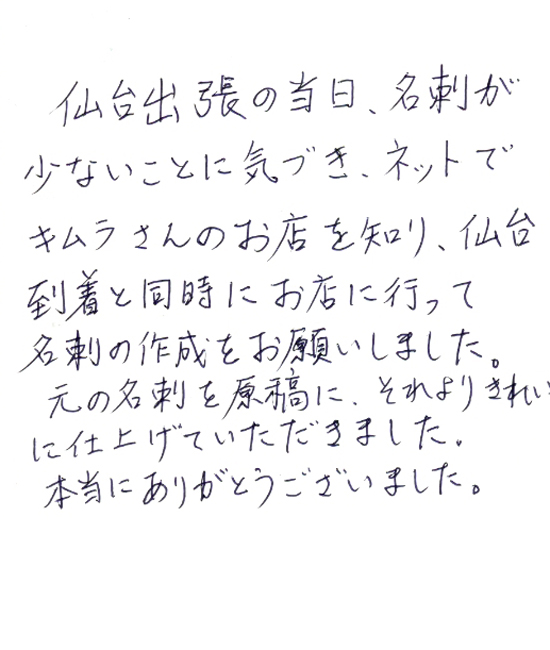 仙台出張の当日、名刺が
少ないことに気づき、ネットで
キムラさんのお店を知り、仙台
到着と同時にお店に行って
名刺の作成をお願いしました。
元の名刺を原稿に、それよりきれい
に仕上げていただきました。
本当にありがとうございました。